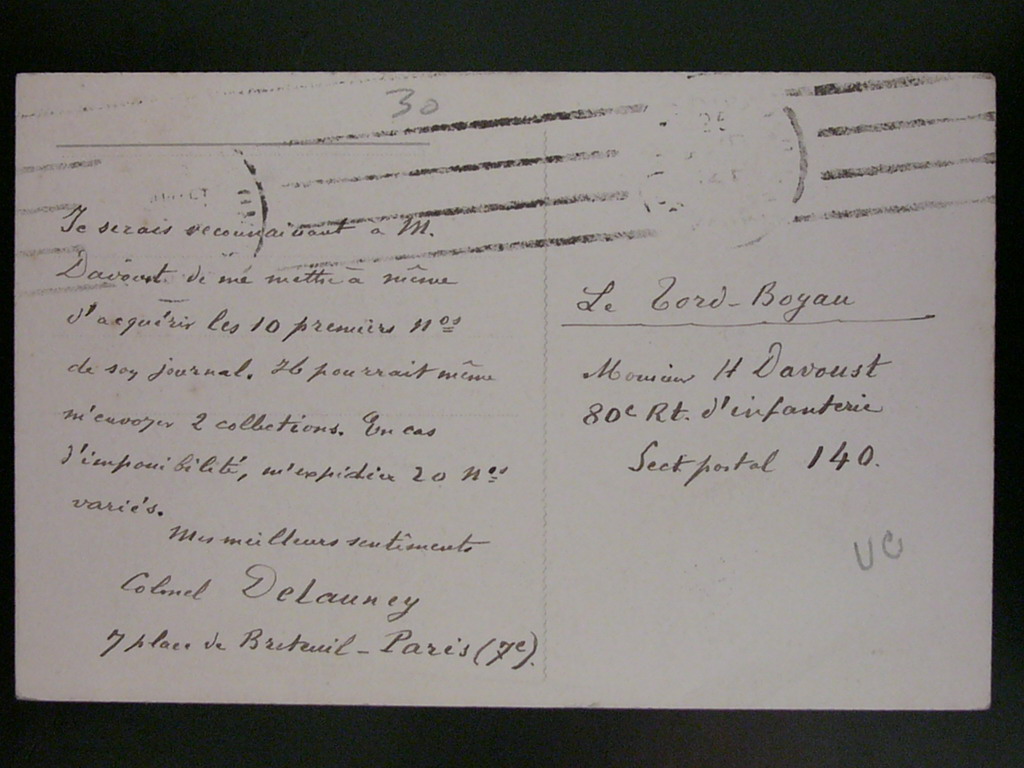 30
Je serais reconnaissant à M.
Davoust de me mettre à même
d'acquérir les 10 premiers Nos
de son journal. Il pourrait même
m'envoyer 2 collections. En cas
d'impossibilité, m'expédier 20 Nos
variés.
Mes meilleurs sentiments
Colonel Delauney
7 place de Breteuil - Paris (7e).
Le Tord-Boyau
Monsieur H Davoust
80e Rt. d'infanterie
Sect postal 140.